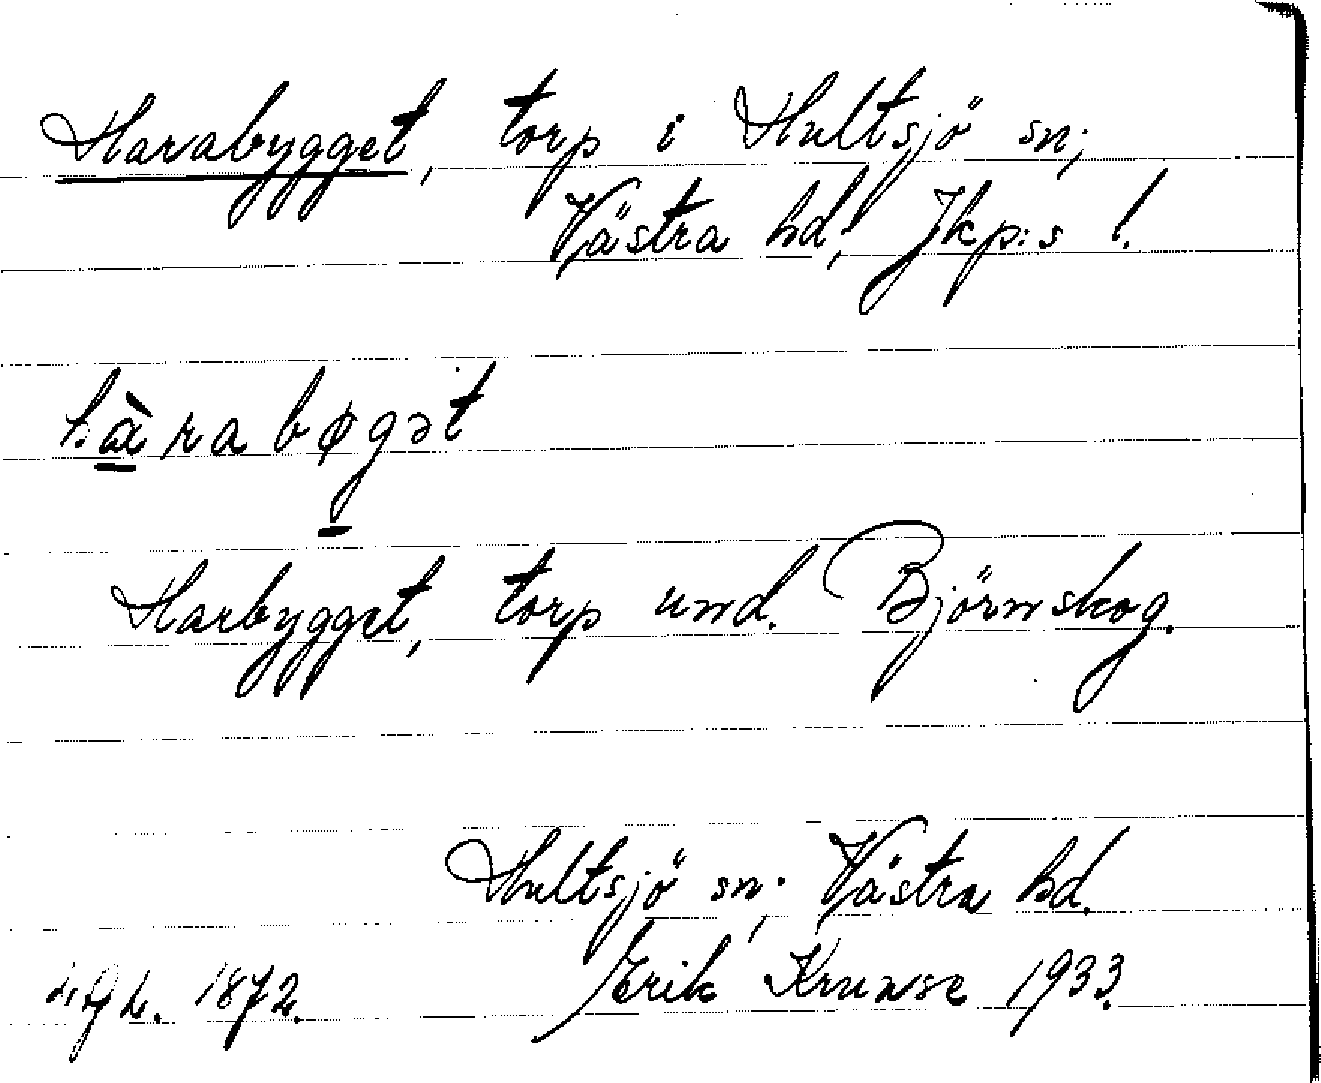 Harabygget, torp i Hultsjö sn;
Västra hd; Jkp:s l.
hàrabøgət
Harbygget, torp und. Björnskog.
Hultsjö sn; Västra hd.
1872. Erik Krunse 1933.